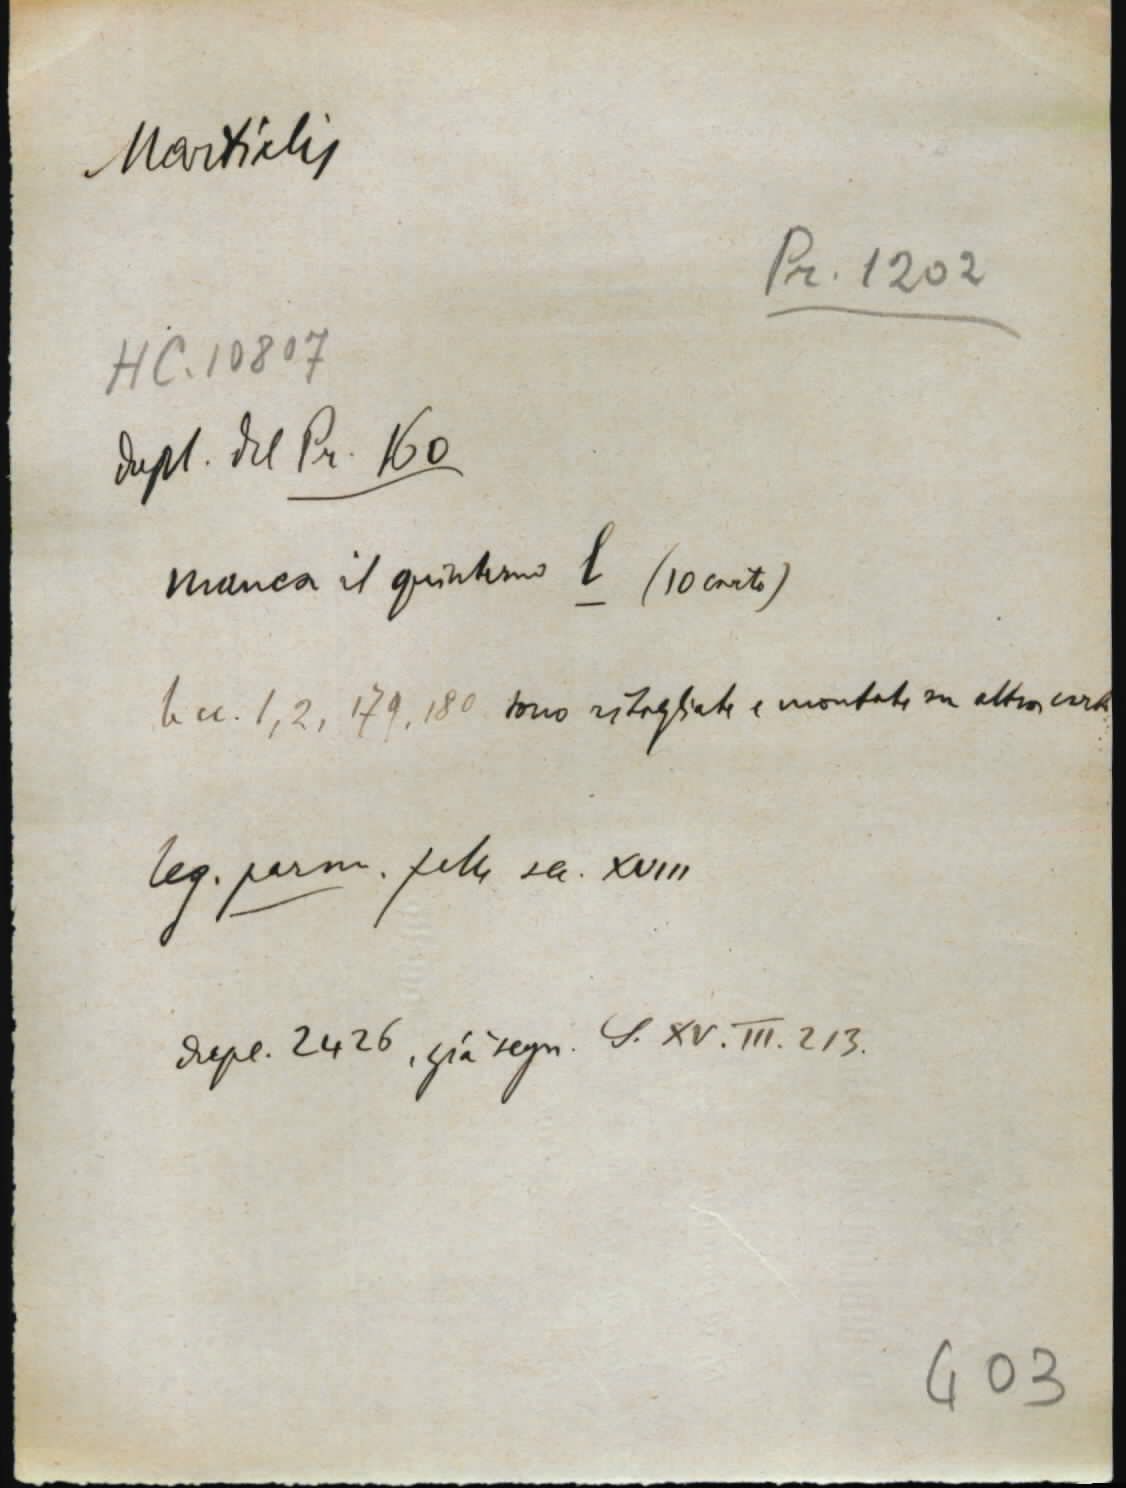 Martialis
Pr. 1202
HC. 10807
dupl. del Pr. 160
manca il quinterno l (10 carte)
le cc. 1, 2, 179, 180 sono ritagliate e montate su altra carta
leg. parm. pelle sec. XVIII
dupl. 2426, già segn. S. XV. III. 213.
403